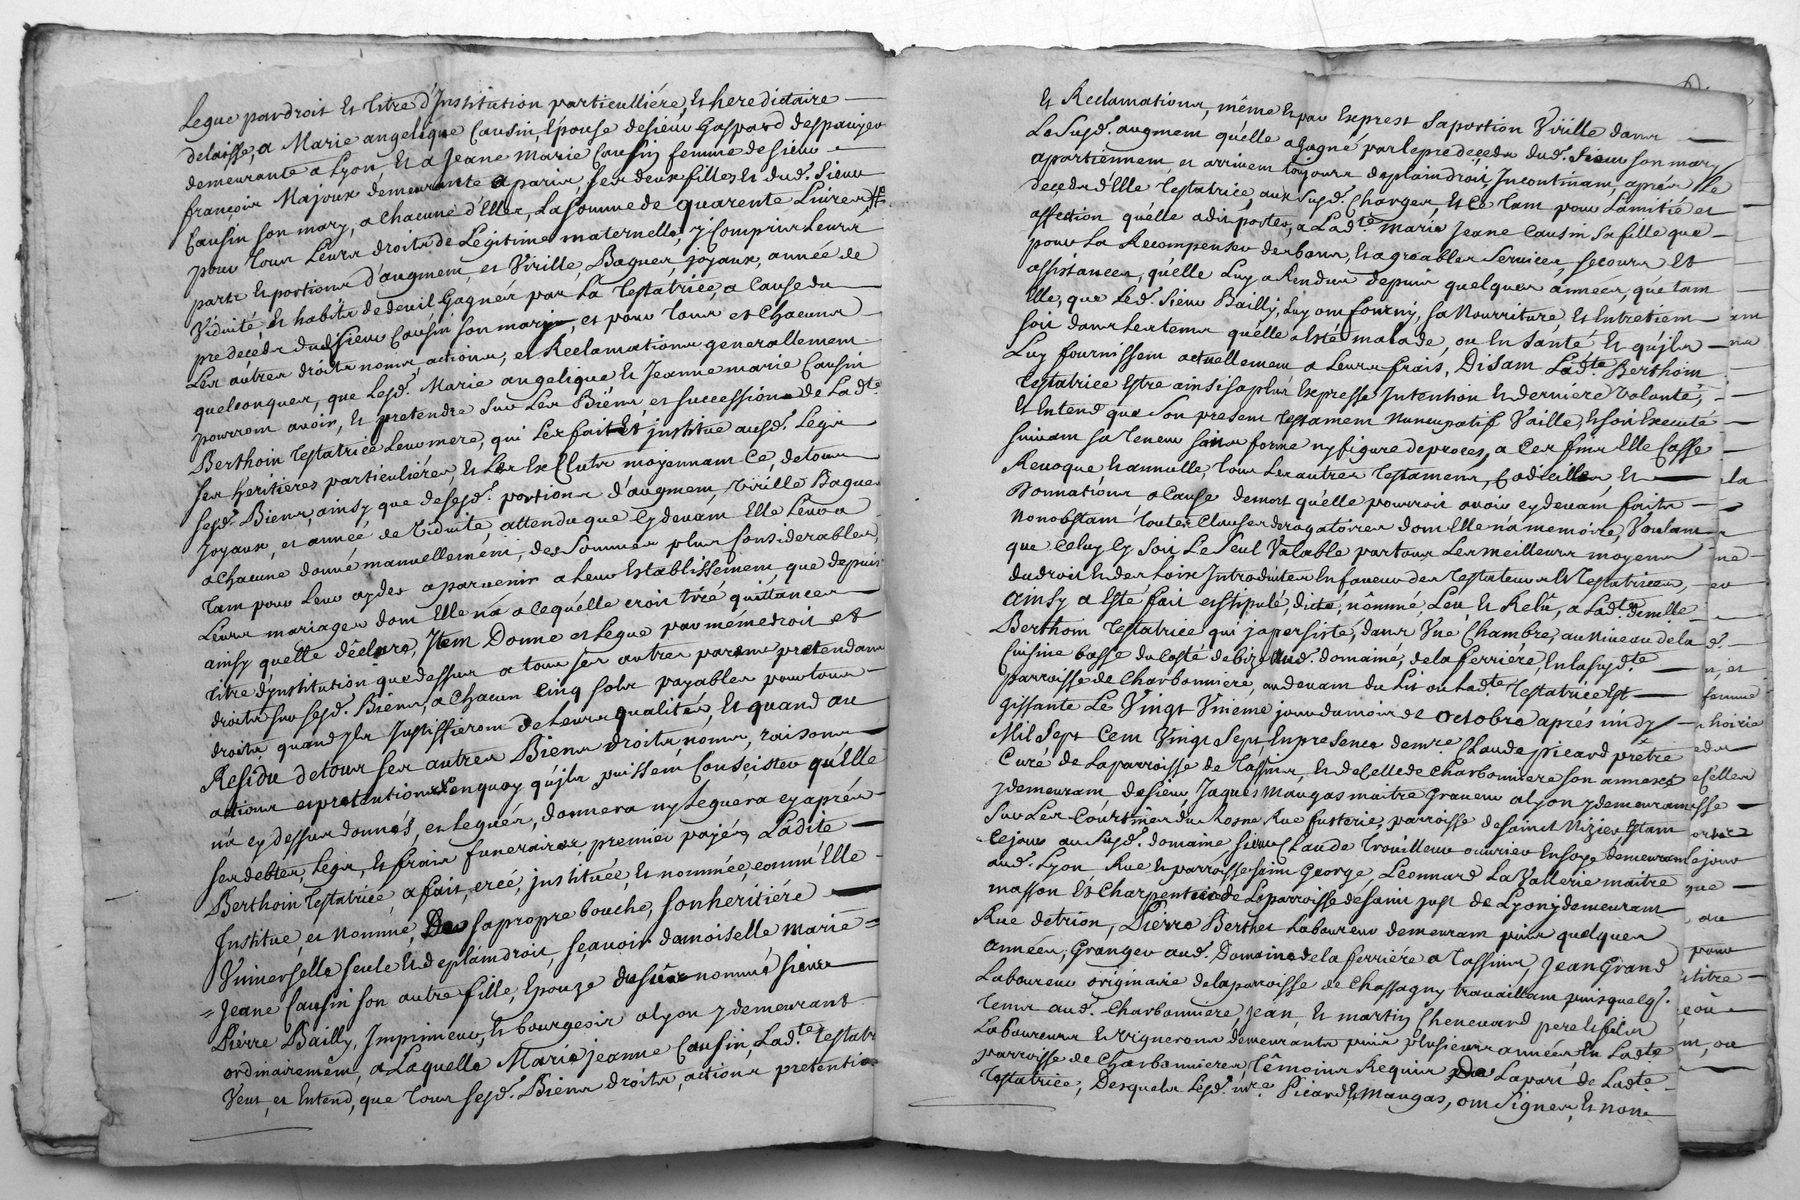 Legue par droit et titre d'Institution particulliére, et hereditaire
delaisse, a Marie angelique Causin, Epouse de sieur Gaspard despaujer
demeurante a Lyon, et a Jeane Marie Causin femme de sieur
françois Majoux demeurante a paris, ses deux filles et dud. sieur
Causin son mary, a chacune d'Elles, La somme de quarente Livres
pour tous Leurs droits de Legitime maternelle, y Compris Leurs
parts et portions d'augment, et Virille Bagues joyaux, année de
Viduité, et habits de deuil, Gagnés par La Testatrice, a Cause du
predecedz dud sieur Causin son mary, et pour tous et Chacuns
Les autres droits noms, actions, et Reclamations generallement
quelconques, que Lesd. Marie angelique et Jeanne marie Causin
pourront avoir, et pretendre sur Les Biens, et succession de Lad.te
Berthoin Testatrice Leur mere, qui Les fait et institue ausd. Legs
ses heritieres particuliéres, et Les Exclut moyennant Ce, de tous
sesd. Biens, ainsy que desesd. portions d'augment, Virille Bagues
Joyaux, et année de Viduité, attendu que Cy devant Elle Leur a
a chacune donné manuellement, des sommes plus Considerables,
tant pour Leur ayder a parvenir a Leur Establissement, que depuis
Leurs mariages dont Elle n'a acequ'elle croit tiré quittances
ainsy quelle déclare, Item Donne et Legue par méme droit et
titre d'ynstitution que dessus a tous ses autres parens pretendans
droits sur sesd. Biens, a Chacun Cinq sols payables pour tous
droits quand yls Justiffieront de Leurs qualités, Et quand au
Residu de tous ses autres Biens droits noms, raisons
actions et pretentions, Enquoy qu'jls puissent Consister qu'Elle
n'a cy dessus donnés, et Legués, donnera ny Leguera cy aprés
ses debtes, Legs, et frais funeraires, premier payés, Ladite
Berthoin Testatrice, a fait, creé, justituée, et nommée, comm'Elle
Institue, et Nomme, De sa propre bouche, son heritiére
Vniverselle seule et de plaindroit, sçavoir damoiselle Marie =
= Jeane Causin son autre fille, Epouze du sieur nommé sieur
Pierre Bailly, Imprimeur, et bourgeois a Lyon y demeurant
ordinairement, a Laquelle Marie jeanne Causin, Lad.te testatr
Veut, et Entend, que tous sesd. Biens droits, actions pretentio
Et Reclamations, même et par Exprest sa portion Virille dans
Le susd. augment qu'elle a Gagné par le predecedz dud. Sieur son mary
apartiennent et arrivent toujours de plaindroit, Incontinant, aprés le
decedz d'Elle Testatrice, aux susd. Charges, et Ce tant pour Lamitié et
affection qu'elle a dit porter, a Lad.te Marie Jeane Causin sa fille que
pour La Recompenser des bons, et agreables services, secours et
assistances, qu'elle Luy a Rendus depuis quelques années, que tant
Elle, que Led. Sieur Bailly, Luy ont fourny, sa Nourriture, et Entretient
soit dans Les tems qu'elle a Esté malade, ou en santé et qu'jls
Luy fournissent actuellement a Leurs frais, Disant Lad.te Berthoin
Testatrice Estre ainsi sa plus Expresse Intention et derniere Volonté,
Et Entend que son present Testament Nuncupatif Vaille, et soit Executé
suivant sa teneur sans forme ny figure de proces, a Ces fins Elle Casse
Revoque et annulle, tous Les autres Testaments, Codicilles et
Donnations a Cause de mort qu'elle pourroit avoir cy devant faits
nonobstant Toutes Clauses derogatoires dont Elle n'a memoire, Voulant
que Celuy Cy soit Le seul Valable par tous Les meilleurs moyens
du droit et des Loix Introduites en faveur des Testateurs et Testatrices,
Ainsy a Esté fait et stipulé, dicté, nômmé, Leu, et Relû, a Lad.te demlle
Berthoin Testatrice qui ja persisté, dans Vne Chambre, au Niveau de la
Cuisine basse du Costé de bize dud. domaine, de la ferriére, en la susd.te
parroisse de Charbonniere, au devant du Lit ou Lad.te Testatrice Est
gissante Le Vingt Vnieme jour du mois de octobre aprés midy
Mil sept Cent Vingt sept En presence de mre. Claude picard prêtre
Curé de la parroisse de Tassins, et de Celle de Charbonniere son annexe
y demeurant de sieur Jaques Maugas maitre Graveur a Lyon y demeurant
Sur Les Courtines du Rosne Rue fusterie, parroisse de saint Nizier Estant
Cejour au susd. domaine sieur Claude Trouilleur ouvrier en soye demeurant
aud. Lyon Rue et parroisse saint George, Leonnard La Vallerie maitre
masson et Charpentier de La parroisse de saint just de Lyon y demeurant
Rue de trion, Pierre Berthet Laboureur demeurant puis quelques
années, Granger aud. Domaine de la ferriére a Tassins, Jean Grand
Laboureur originaire de la parroisse de Chassagny travaillant puis quelq.
tems aud. Charbonniere, Jean, et martin Chenevard pere et fils
Laboureurs et vignerons demeurants puis plusieurs années en Ladte
parroisse de Charbonnieres, Têmoins Requis De La part de Ladte.
Testatrice, Desquels Lesd. mre. Picard, et Maugas, ont signer, et non